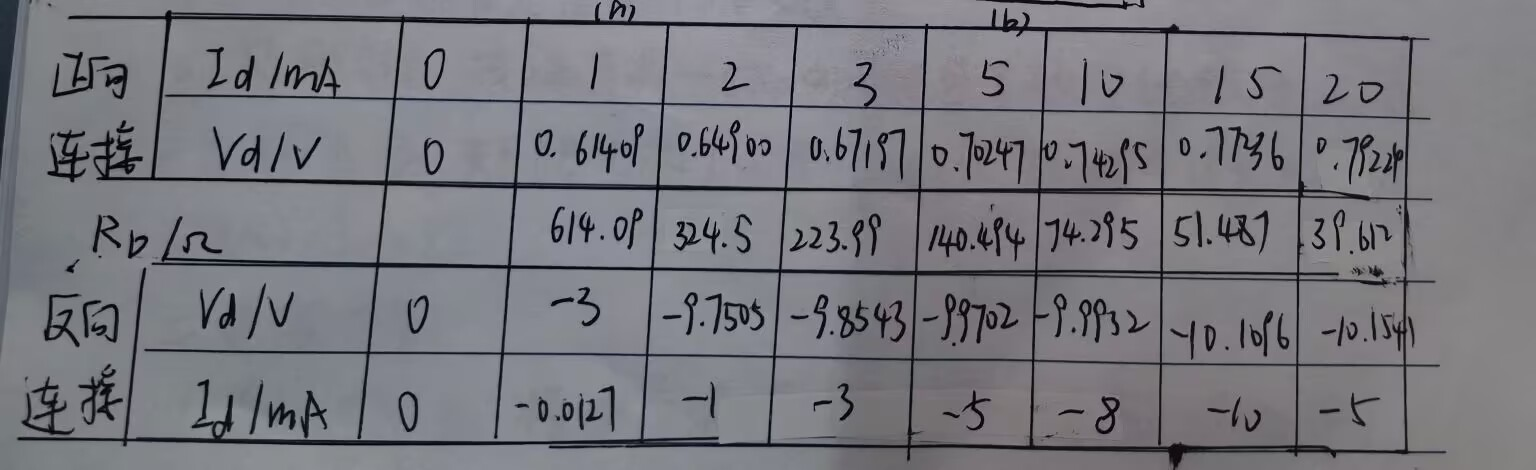 (a) (b)
正向 Id/mA 0 1 2 3 5 10 15 20
连接 Vd/V 0 0.61409 0.64900 0.67197 0.70247 0.74295 0.77236 0.79224
RD/Ω 614.09 324.5 223.99 140.494 74.295 51.487 39.612
反向 Vd/V 0 -3 -9.7505 -9.8543 -9.9702 -9.9932 -10.1096 -10.1541
连接 Id/mA 0 -0.0127 -1 -3 -5 -8 -10 -5